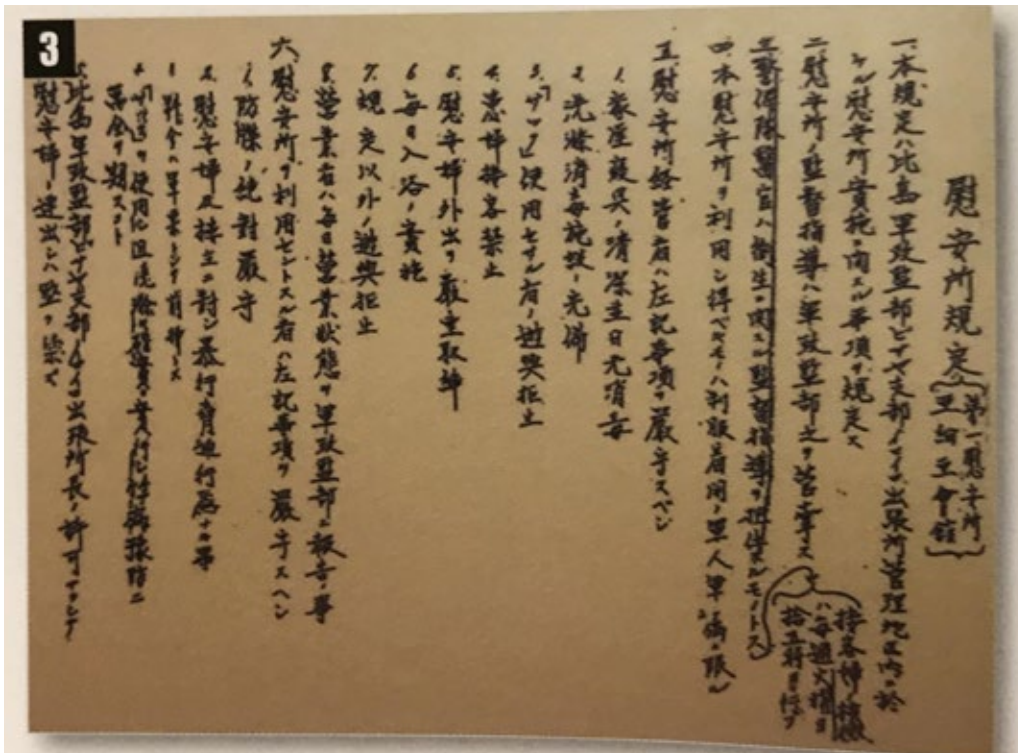 3
慰安所規定(第一慰安所 亜細亜會館)
一、本規定ハ比島軍政監部ビサヤ支部イロイロ出張所管理地区内ニ於
ケル慰安所実施ニ関スル事項ヲ規定ス
二、慰安所ノ監督指導ハ軍政監部之ヲ管掌ス
三、警備隊医官ハ衛生ニ関スル監督指導ヲ担任スルモノトス
接客婦ノ検黴
ハ毎週火曜日
拾五時ヨリ行フ
四、本慰安所ヲ利用シ得ベキモノハ制服着用ノ軍人軍属ニ限ル
五、慰安所経営者ハ左記事項ヲ厳守スベシ
1. 家屋寝具ノ清潔並日光消毒
2. 洗滌消毒施設ノ完備
3. 「サック」使用セザル者ノ遊興拒止
4. 患婦接客禁止
5. 慰安婦外出ヲ厳重取締
6. 毎日入浴ノ実施
7. 規定以外ノ遊興拒止
8. 営業者ハ毎日営業状態ヲ軍政監部ニ報告ノ事
六、慰安所ヲ利用セントスル者ハ左記事項ヲ厳守スベシ
1. 防諜ノ絶対厳守
2. 慰安婦及楼主ニ対シ暴行脅迫行為ナキ事
3. 料金ハ軍票トシテ前払トス
4. 「サック」ヲ使用シ且洗滌ヲ確実ニ実行シ性病予防ニ
万全ヲ期スコト
5. 比島軍政監部ビサヤ支部イロイロ出張所長ノ許可ナクシテ
慰安婦ノ連出シハ堅ク禁ズ